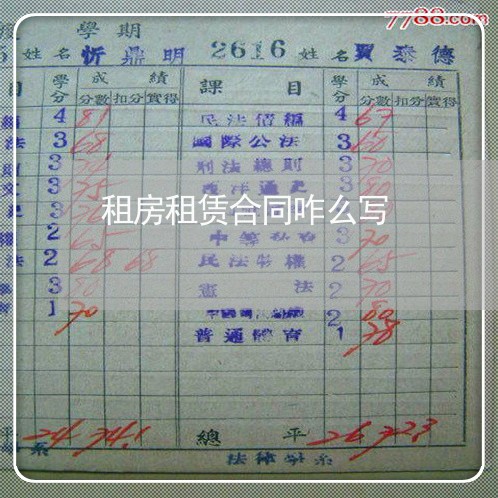 7788.com
學期
姓名 忻鼎明 2616 姓名 賈泰德
目 學分 成績 課目 學分 成績
分數 扣分 實得 分數 扣分 實得
4 81 民法債編 4 67
法 3 68 國際公法 3 60
3 刑法總則 3 70
3 75 西洋通史 3 80
租房租赁合同咋么写
2 65 3 70
法 2 68 68 民法物權 2 65
3 80 憲法 2 70
1 70 2 80
普通體育 1 78
24 74.1 總平 26 72.3
系 法律學系